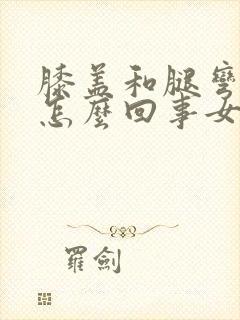 膝盖和腿弯
怎麼回事女
羅劍